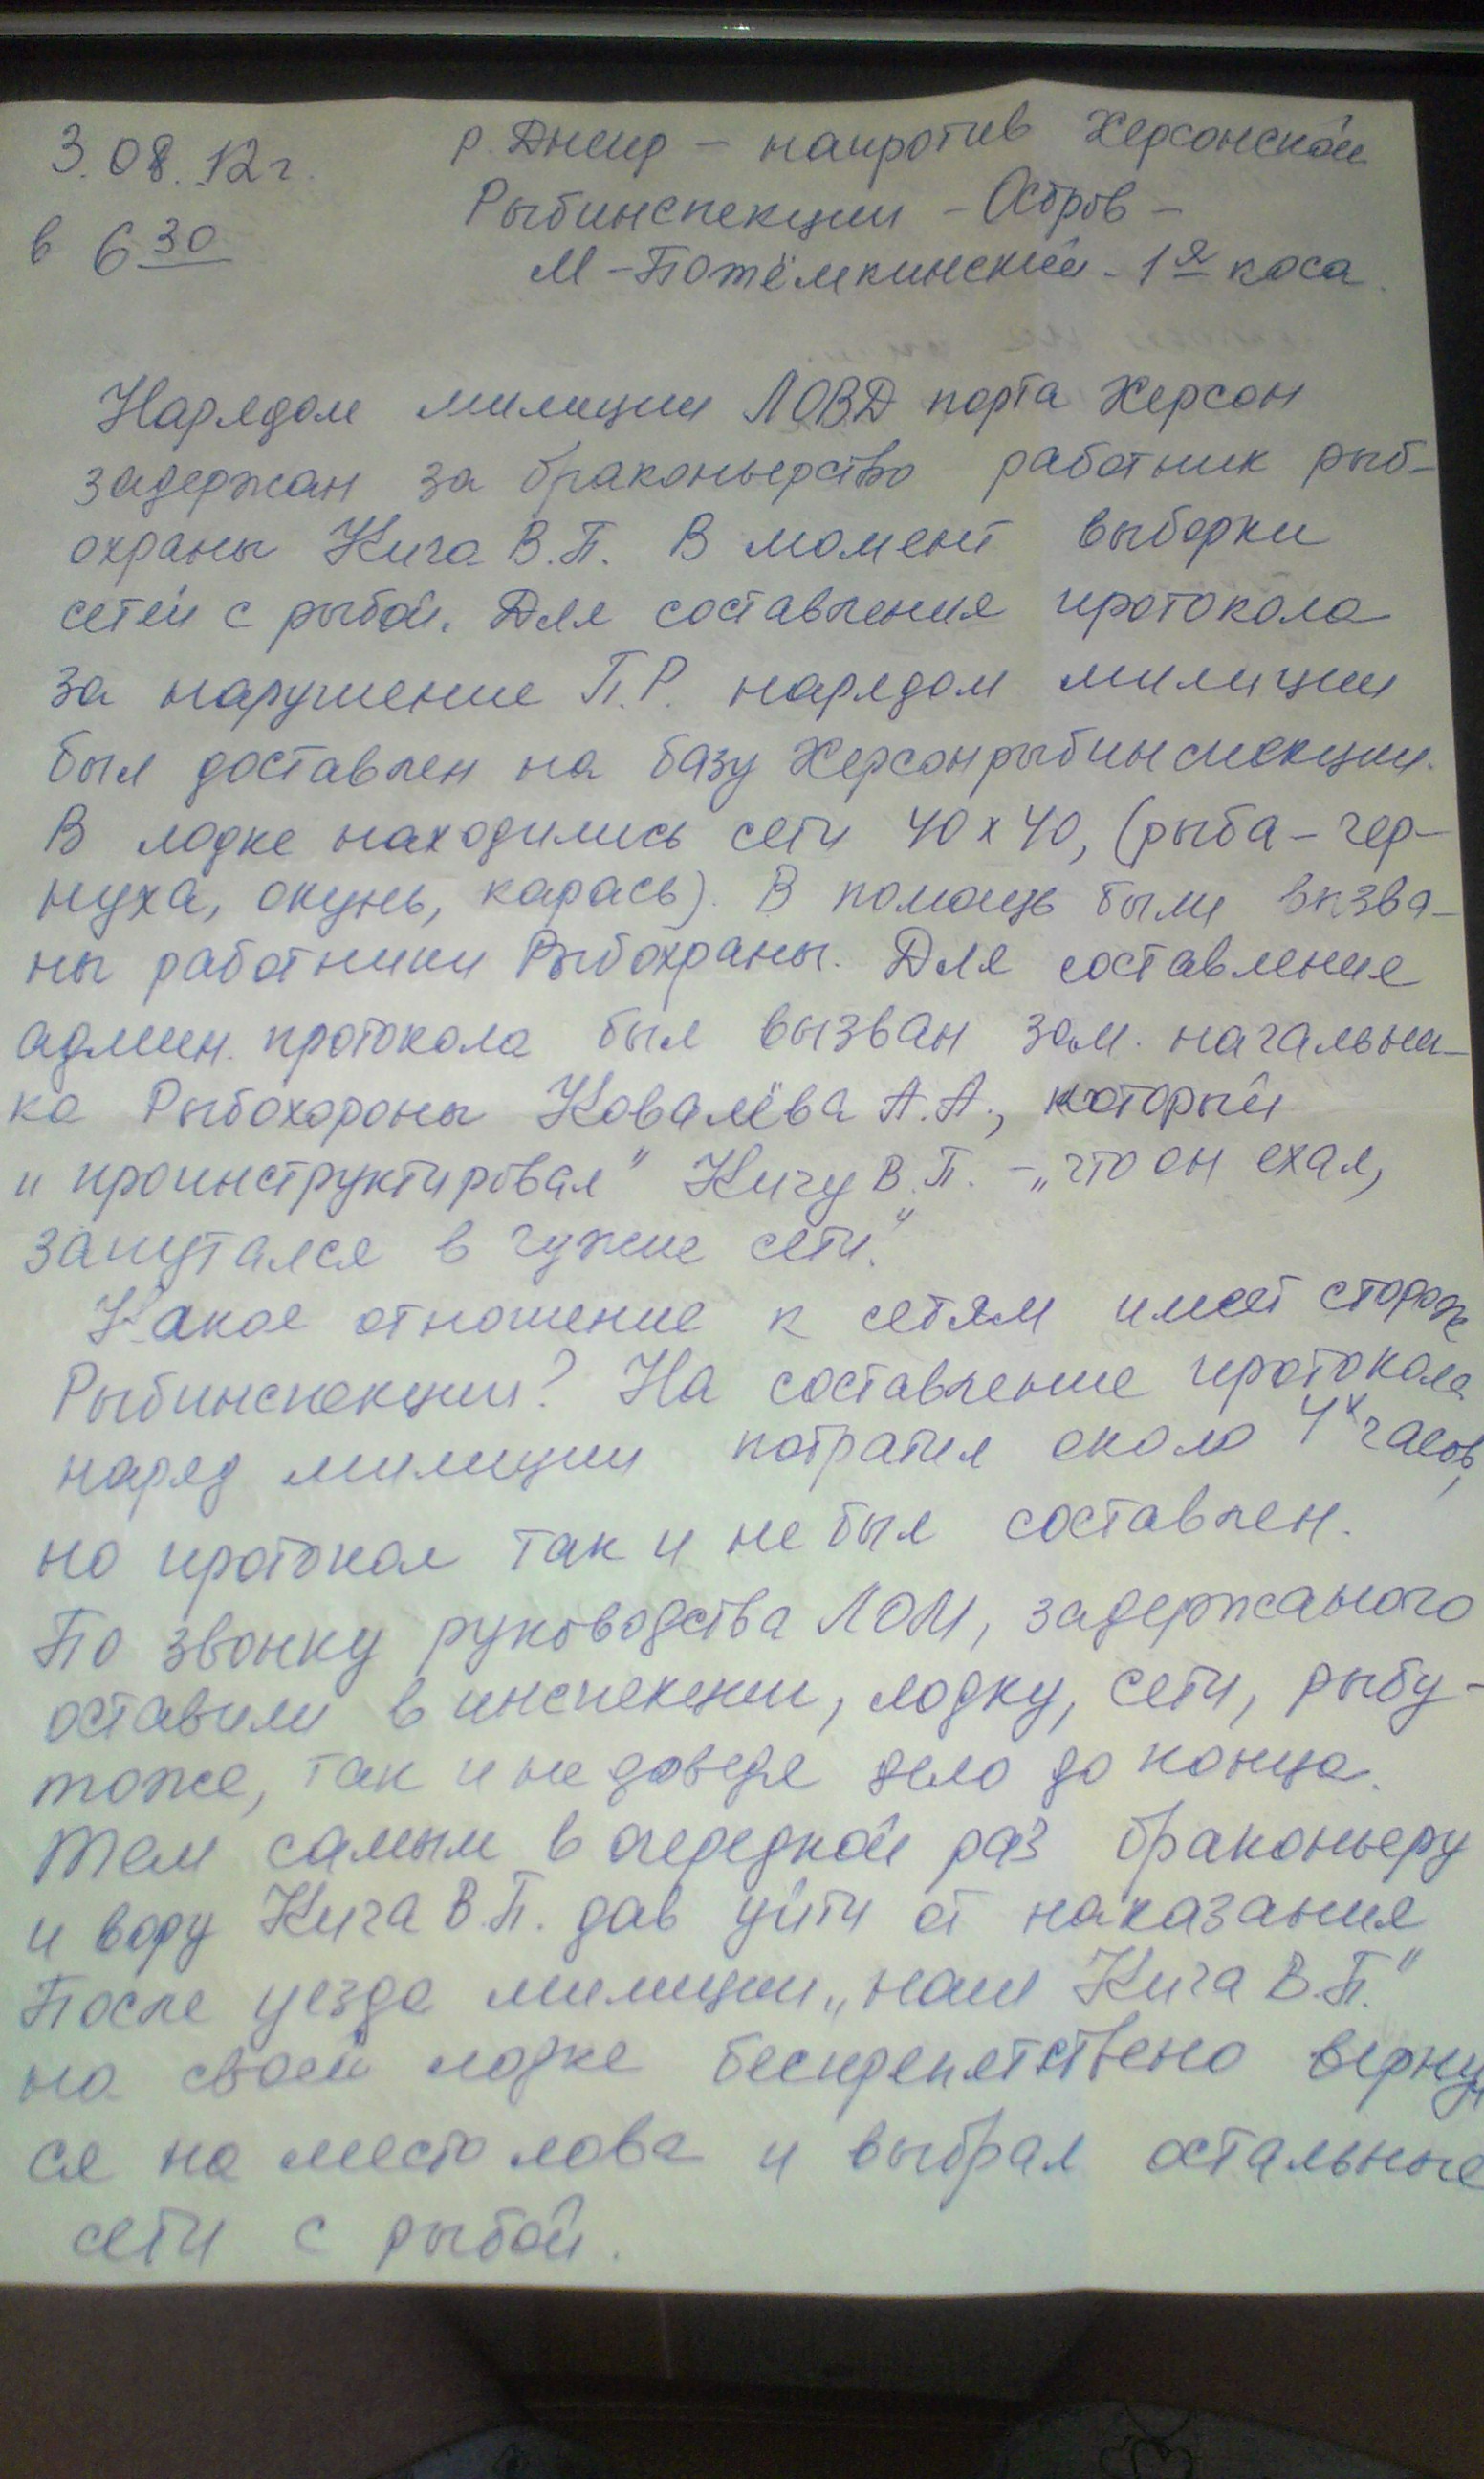 3.08.12г. р. Днепр – напротив Херсонской
в 6 30 Рыбинспекции – Остров –
М-Потёмкинский – 1я коса.
Нарядом милиции ЛОВД порта Херсон
задержан за браконьерство работник рыб-
охраны Кича В.П. В момент выборки
сетей с рыбой. Для составления протокола
за нарушение П.Р. нарядом милиции
был доставлен на базу Херсонрыбинспекции.
В лодке находились сети 40х40, (рыба – чер-
нуха, окунь, карась). В помощь были вызва-
ны работники Рыбохраны. Для составления
админ. протокола был вызван зам. начальни-
ка Рыбохороны Ковалёва А.А., который
"проинструктировал" Кичу В.П. – „что он ехал,
запутался в чужие сети."
Какое отношение к сетям имеет сторож
Рыбинспекции? На составление протокола
наряд милиции потратил около 4х часов,
но протокол так и не был составлен.
По звонку руководства ЛОМ, задержаного
оставили в инспекции, лодку, сети, рыбу –
тоже, так и не доведя дело до конца.
Тем самым в очередной раз браконьеру
и вору Кича В.П. дав уйти от наказания
После уезда милиции „наш Кича В.П."
на своей лодке беспрепятствено верну
ся на место лова и выбрал остальные
сети с рыбой.